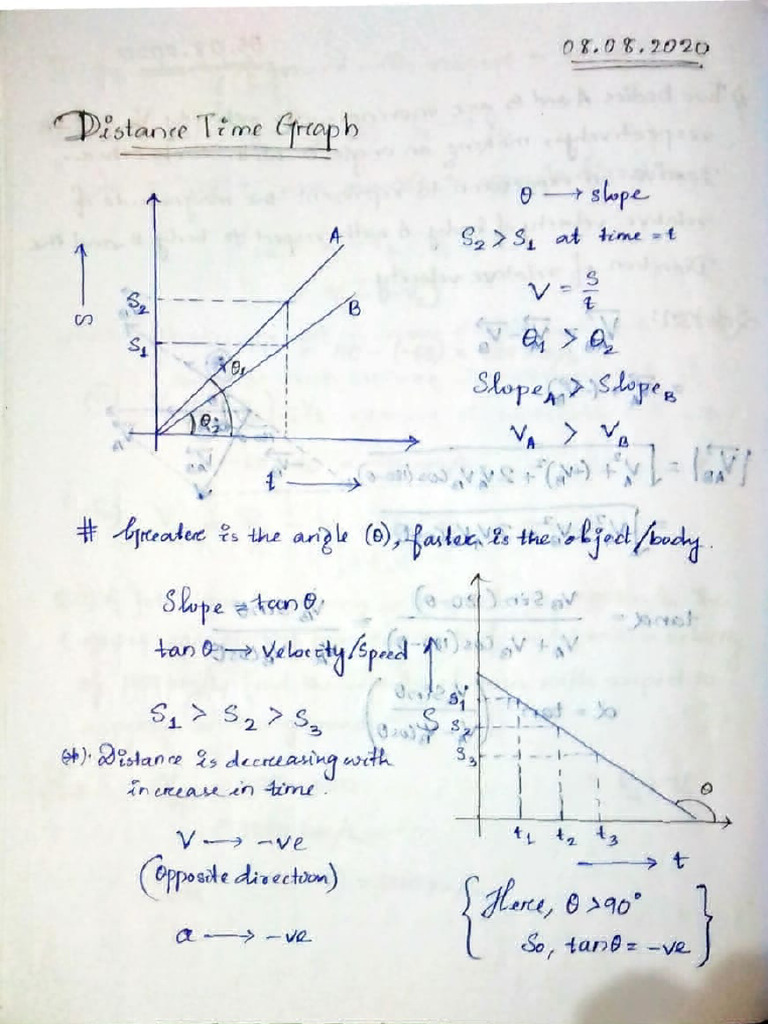 08.08.2020
Distance Time Graph
θ → slope
S₂ > S₁ at time = t
V = S/t
θ₁ > θ₂
Slope_A > Slope_B
V_A > V_B
A
B
S
S₂
S₁
θ₁
θ₂
t
# Greater is the angle (θ), faster is the object/body.
Slope = tanθ
tanθ → Velocity/Speed
S₁ > S₂ > S₃
(*). Distance is decreasing with
increase in time.
V → -ve
(Opposite direction)
a → -ve
S
S₁
S₂
S₃
θ
t₁ t₂ t₃
t
{ Here, θ >90°
So, tanθ = -ve }